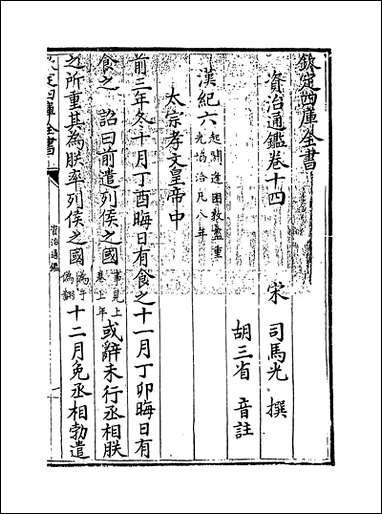 欽定四庫全書
資治通鑑卷十四
宋 司馬光 撰
胡三省 音註
漢紀六 起閼逢困敦盡重光協洽凡八年
太宗孝文皇帝中
前三年冬十月丁酉晦日有食之十一月丁卯晦日有
食之 詔曰前遣列侯之國 事見上卷上年 或辭未行丞相朕
之所重其為朕率列侯之國 為于偽翻 十二月免丞相勃遣
欽定四庫全書
資治通鑑
一